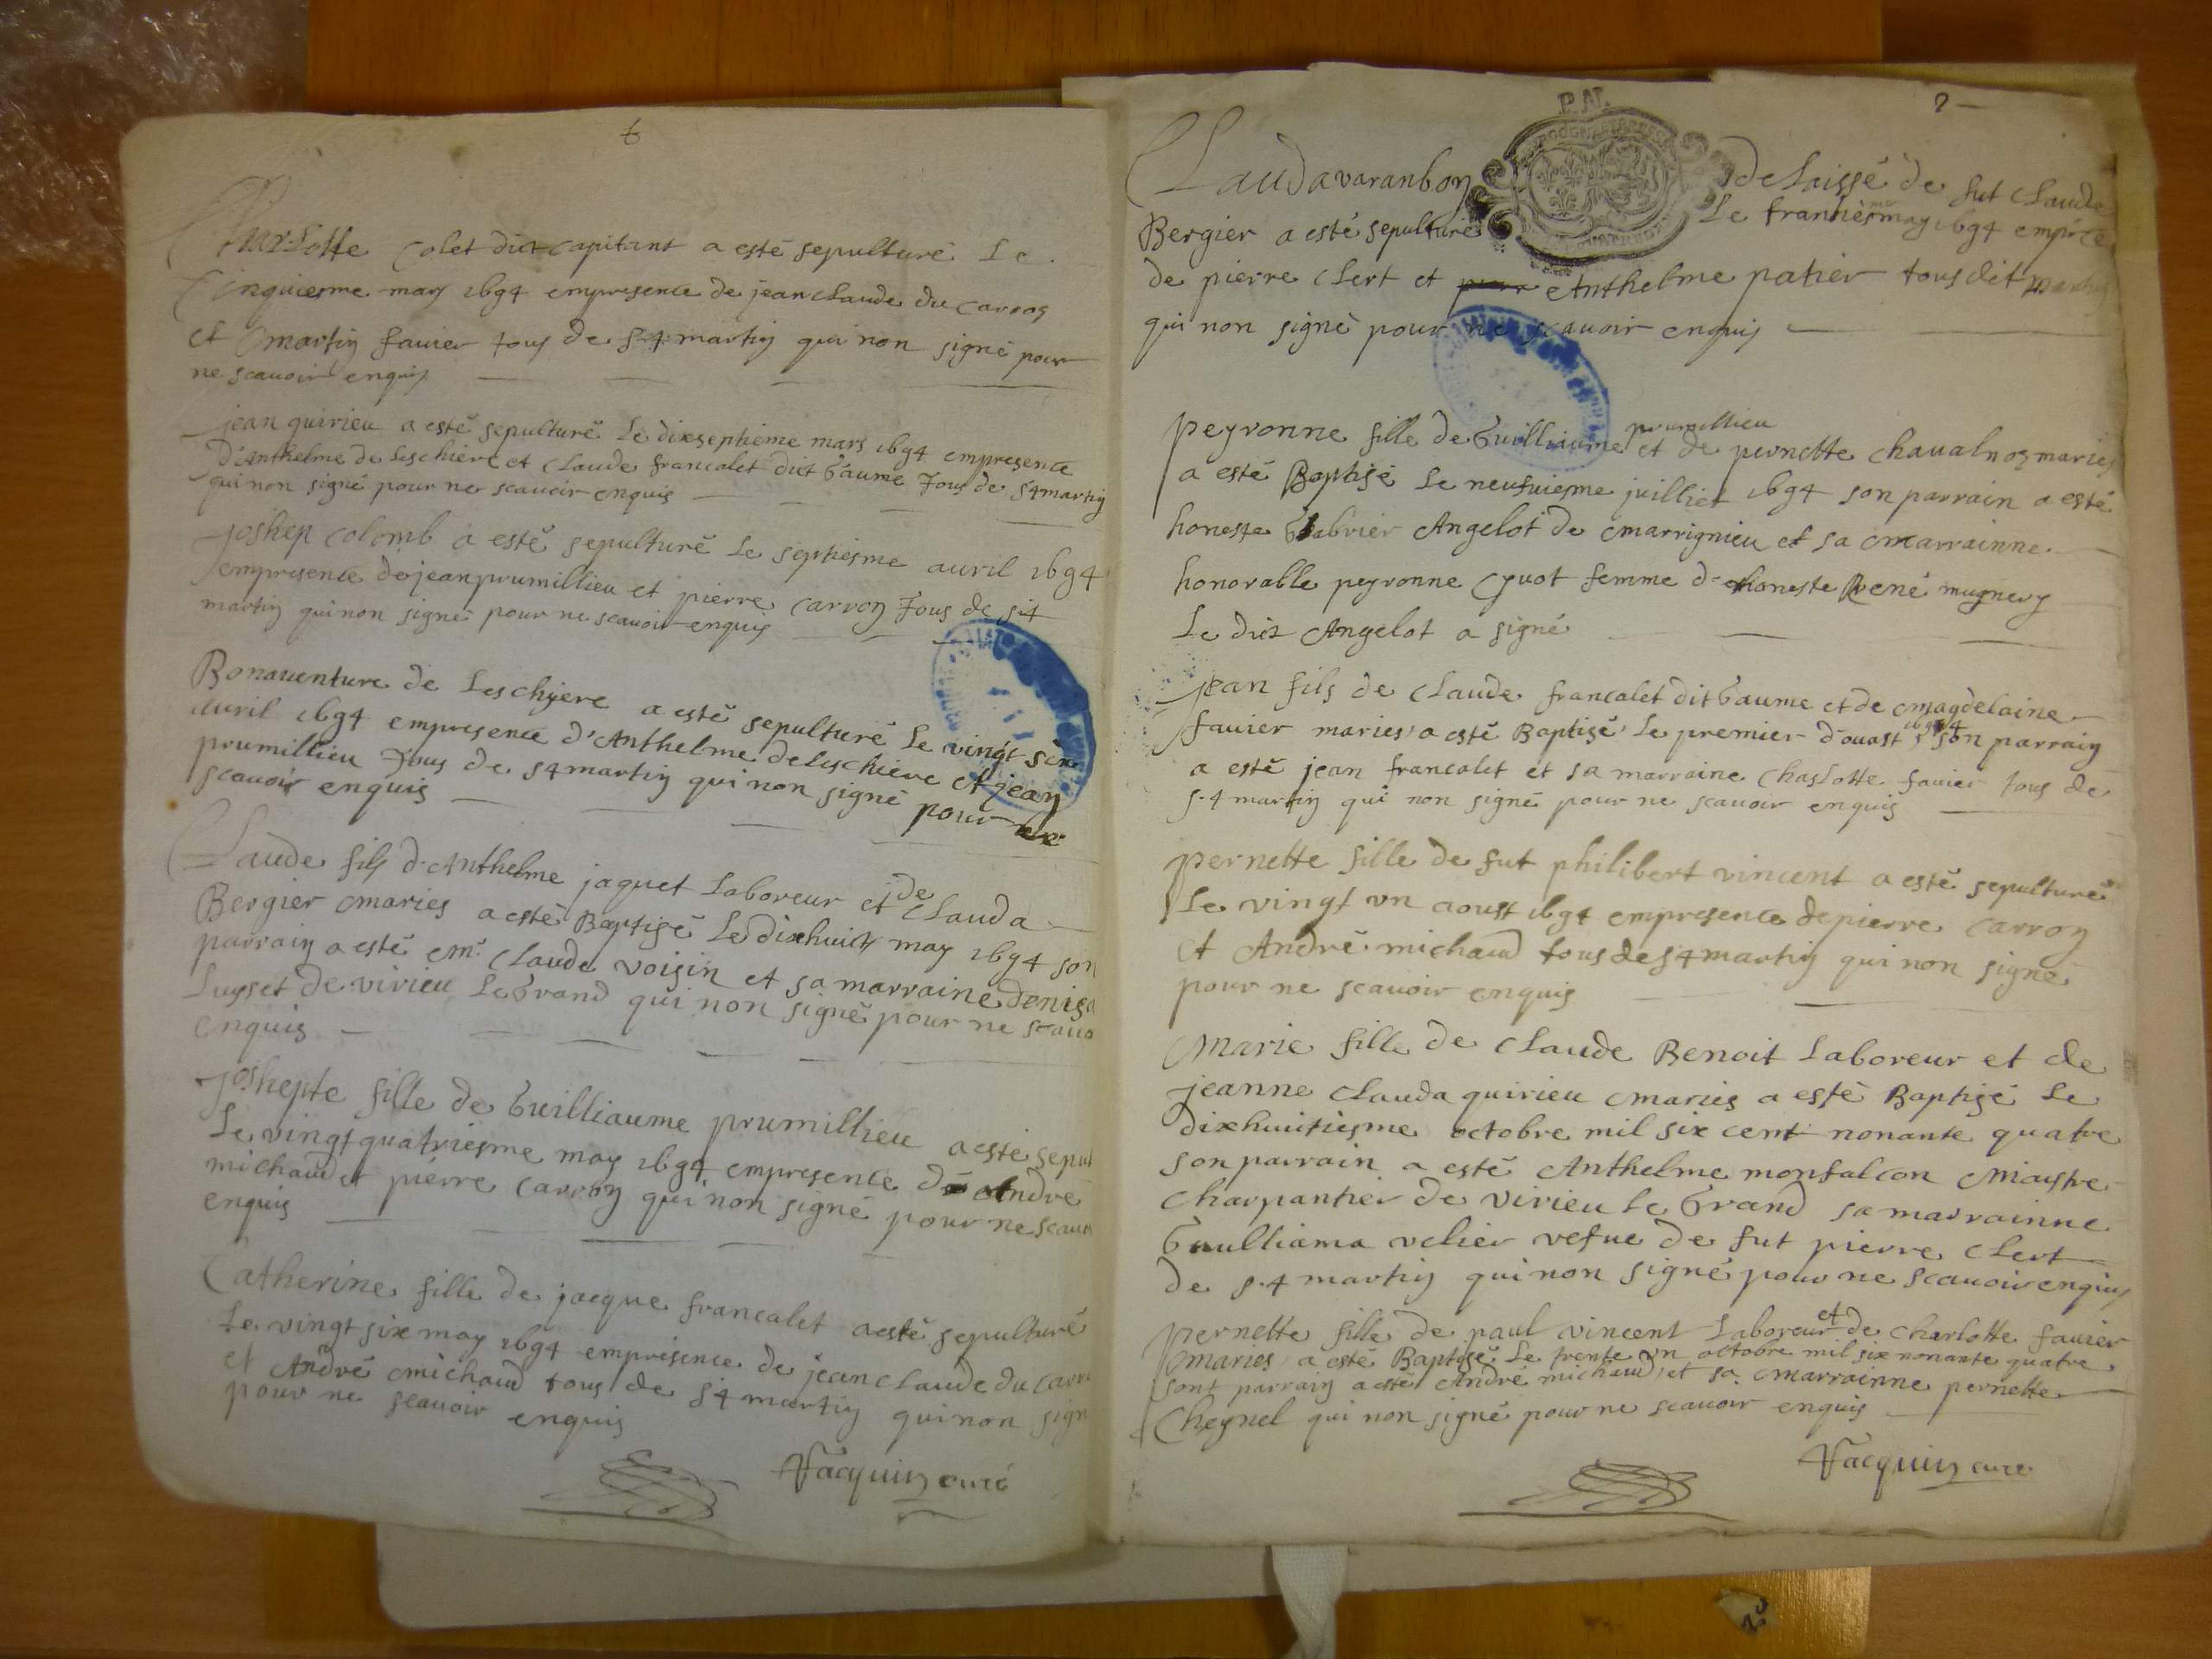 6
Charlotte Colet dict capitant a esté sepulturé Le
Cinquiesme may 1694 empresence de jean claude du carron
et martin favier tous de st martin qui non signé pour
ne scavoir enquis
jean quirieu a esté sepulturé Le dixseptieme mars 1694 empresence
d'Anthelme de Leschiere et claude francalet dict Gaume Tous de st martin
qui non signé pour ne scavoir enquis
Joshep colomb a esté sepulturé Le septiesme auril 1694
empresence de jean prumillieu et pierre carron Tous de st
martin qui non signé pour ne scavoir enquis
Bonauenture de Leschiere a esté sepulturé Le vingt
auril 1694 empresence d'Anthelme deleschiere et jean
prumillieu Tous de st martin qui non signé pour ne
scavoir enquis
Claude fils d'Anthelme jaquet Laboreur et de Clauda
Bergier maries a esté Baptisé Le dixhuict may 1694 son
parrain a esté mr Claude voisin et sa marraine denisa
Luyset de virieu Le Grand qui non signé pour ne scauo
enquis
Joshepte fille de Guilliaume prumillieu a esté sepul
Le vingt quatriesme may 1694 empresence de André
michaud et pierre carron qui non signé pour ne scauo
enquis
Catherine fille de jacque francalet a esté sepulturé
Le vingt six may 1694 empresence de jean claude du carr
et André michaud tous de st martin qui non sign
pour ne scavoir enquis
Jacquin curé
7
P. AI.
Clauda varanbon delaissé de fut Claude
Bergier a esté sepulturé Le trantiesme may 1694 emprece
de pierre Clert et Anthelme patier tous dit martin
qui non signé pour ne scauoir enquis
peyronne fille de Guilliaume prumillieu et de pernette chaualnoz maries
a esté Baptisé Le neufuiesme juilliet 1694 son parrain a esté
honeste Gabrier Angelot de marrignieu et sa marrainne
honorable peyronne Guot femme d'honeste René mugnery
Le dict Angelot a signé
jean fils de Claude francalet dit Gaume et de magdelaine
favier maries a esté Baptisé Le premier d'ouast 1694 son parrain
a esté jean francalet et sa marraine Chaslotte favier tous de
st martin qui non signé pour ne scauoir enquis
pernette fille de fut philibert vincent a esté sepulturé
Le vingt vn aoust 1694 empresence de pierre carron
et André michaud tous de st martin qui non signé
pour ne scauoir enquis
Marie fille de Claude Benoit Laboreur et de
jeanne Clauda quirieu maries a esté Baptisé Le
dixhuitiesme octobre mil six cent nonante quatre
son parrain a esté Anthelme monfalcon Maistre
Charpantier de virieu Le Grand sa marrainne
Guilliama velier vefue de fut pierre Clert
de st martin qui non signé pour ne scauoir enquis
pernette fille de paul vincent Laboreur et de charlotte favier
maries a esté Baptisé Le trente vn octobre mil six nonante quatre
sont parrain a esté André michaud et sa marrainne pernette
Cheynel qui non signé pour ne scauoir enquis
Jacquin curé